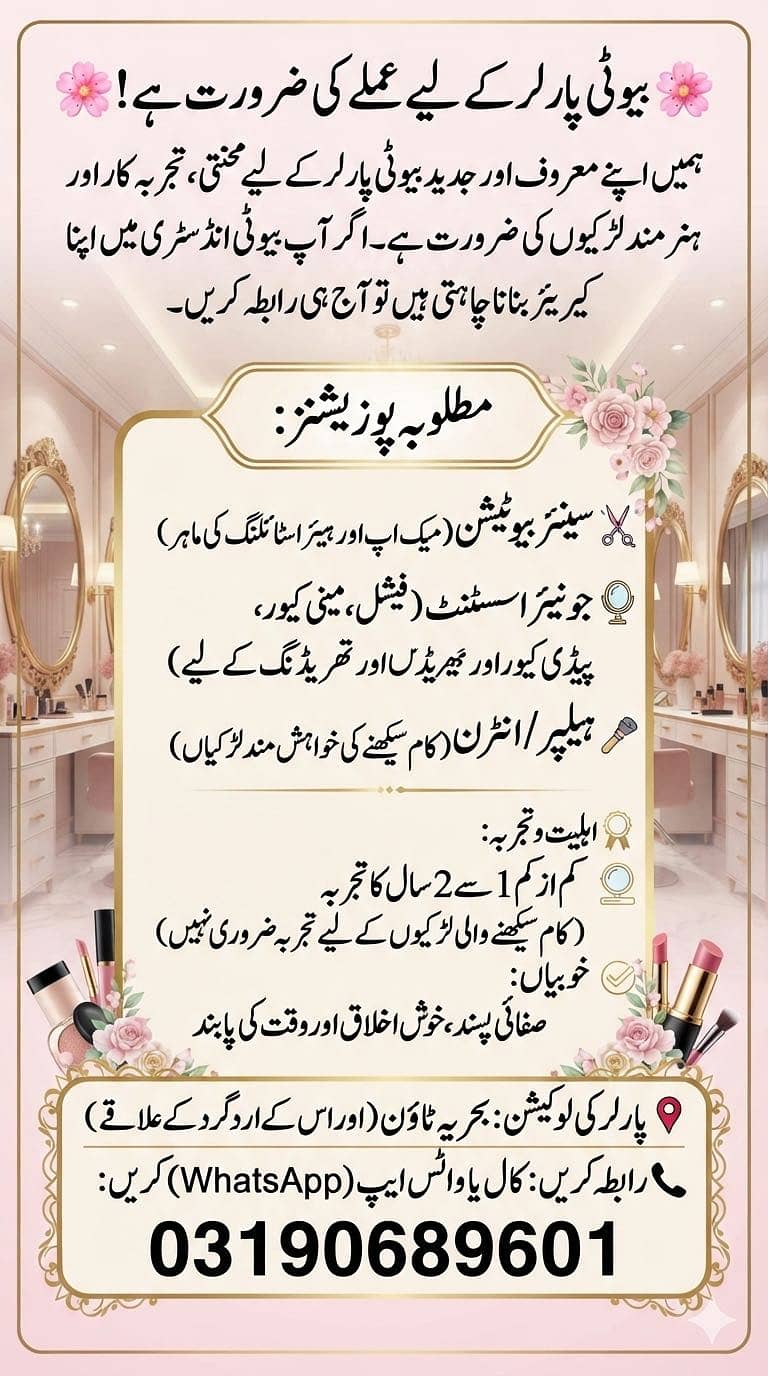 بیوٹی پارلر کے لیے عملے کی ضرورت ہے!
ہمیں اپنے معروف اور جدید بیوٹی پارلر کے لیے محنتی، تجربہ کار اور
ہنر مند لڑکیوں کی ضرورت ہے۔ اگر آپ بیوٹی انڈسٹری میں اپنا
کیریئر بنانا چاہتی ہیں تو آج ہی رابطہ کریں۔
مطلوبہ پوزیشنز:
سینئر بیوٹیشن (میک اپ اور ہیئر اسٹائلنگ کی ماہر)
جونیئر اسسٹنٹ (فیشل، مینی کیور،
پیڈی کیور اور تھریڈنگ کے لیے)
ہیلپر/انٹرن (کام سیکھنے کی خواہش مند لڑکیاں)
اہلیت و تجربہ:
کم از کم 1 سے 2 سال کا تجربہ
(کام سیکھنے والی لڑکیوں کے لیے تجربہ ضروری نہیں)
خوبیاں:
صفائی پسند، خوش اخلاق اور وقت کی پابند
پارلر کی لوکیشن: بحریہ ٹاؤن (اور اس کے ارد گرد کے علاقے)
رابطہ کریں: کال یا واٹس ایپ (WhatsApp) کریں:
03190689601